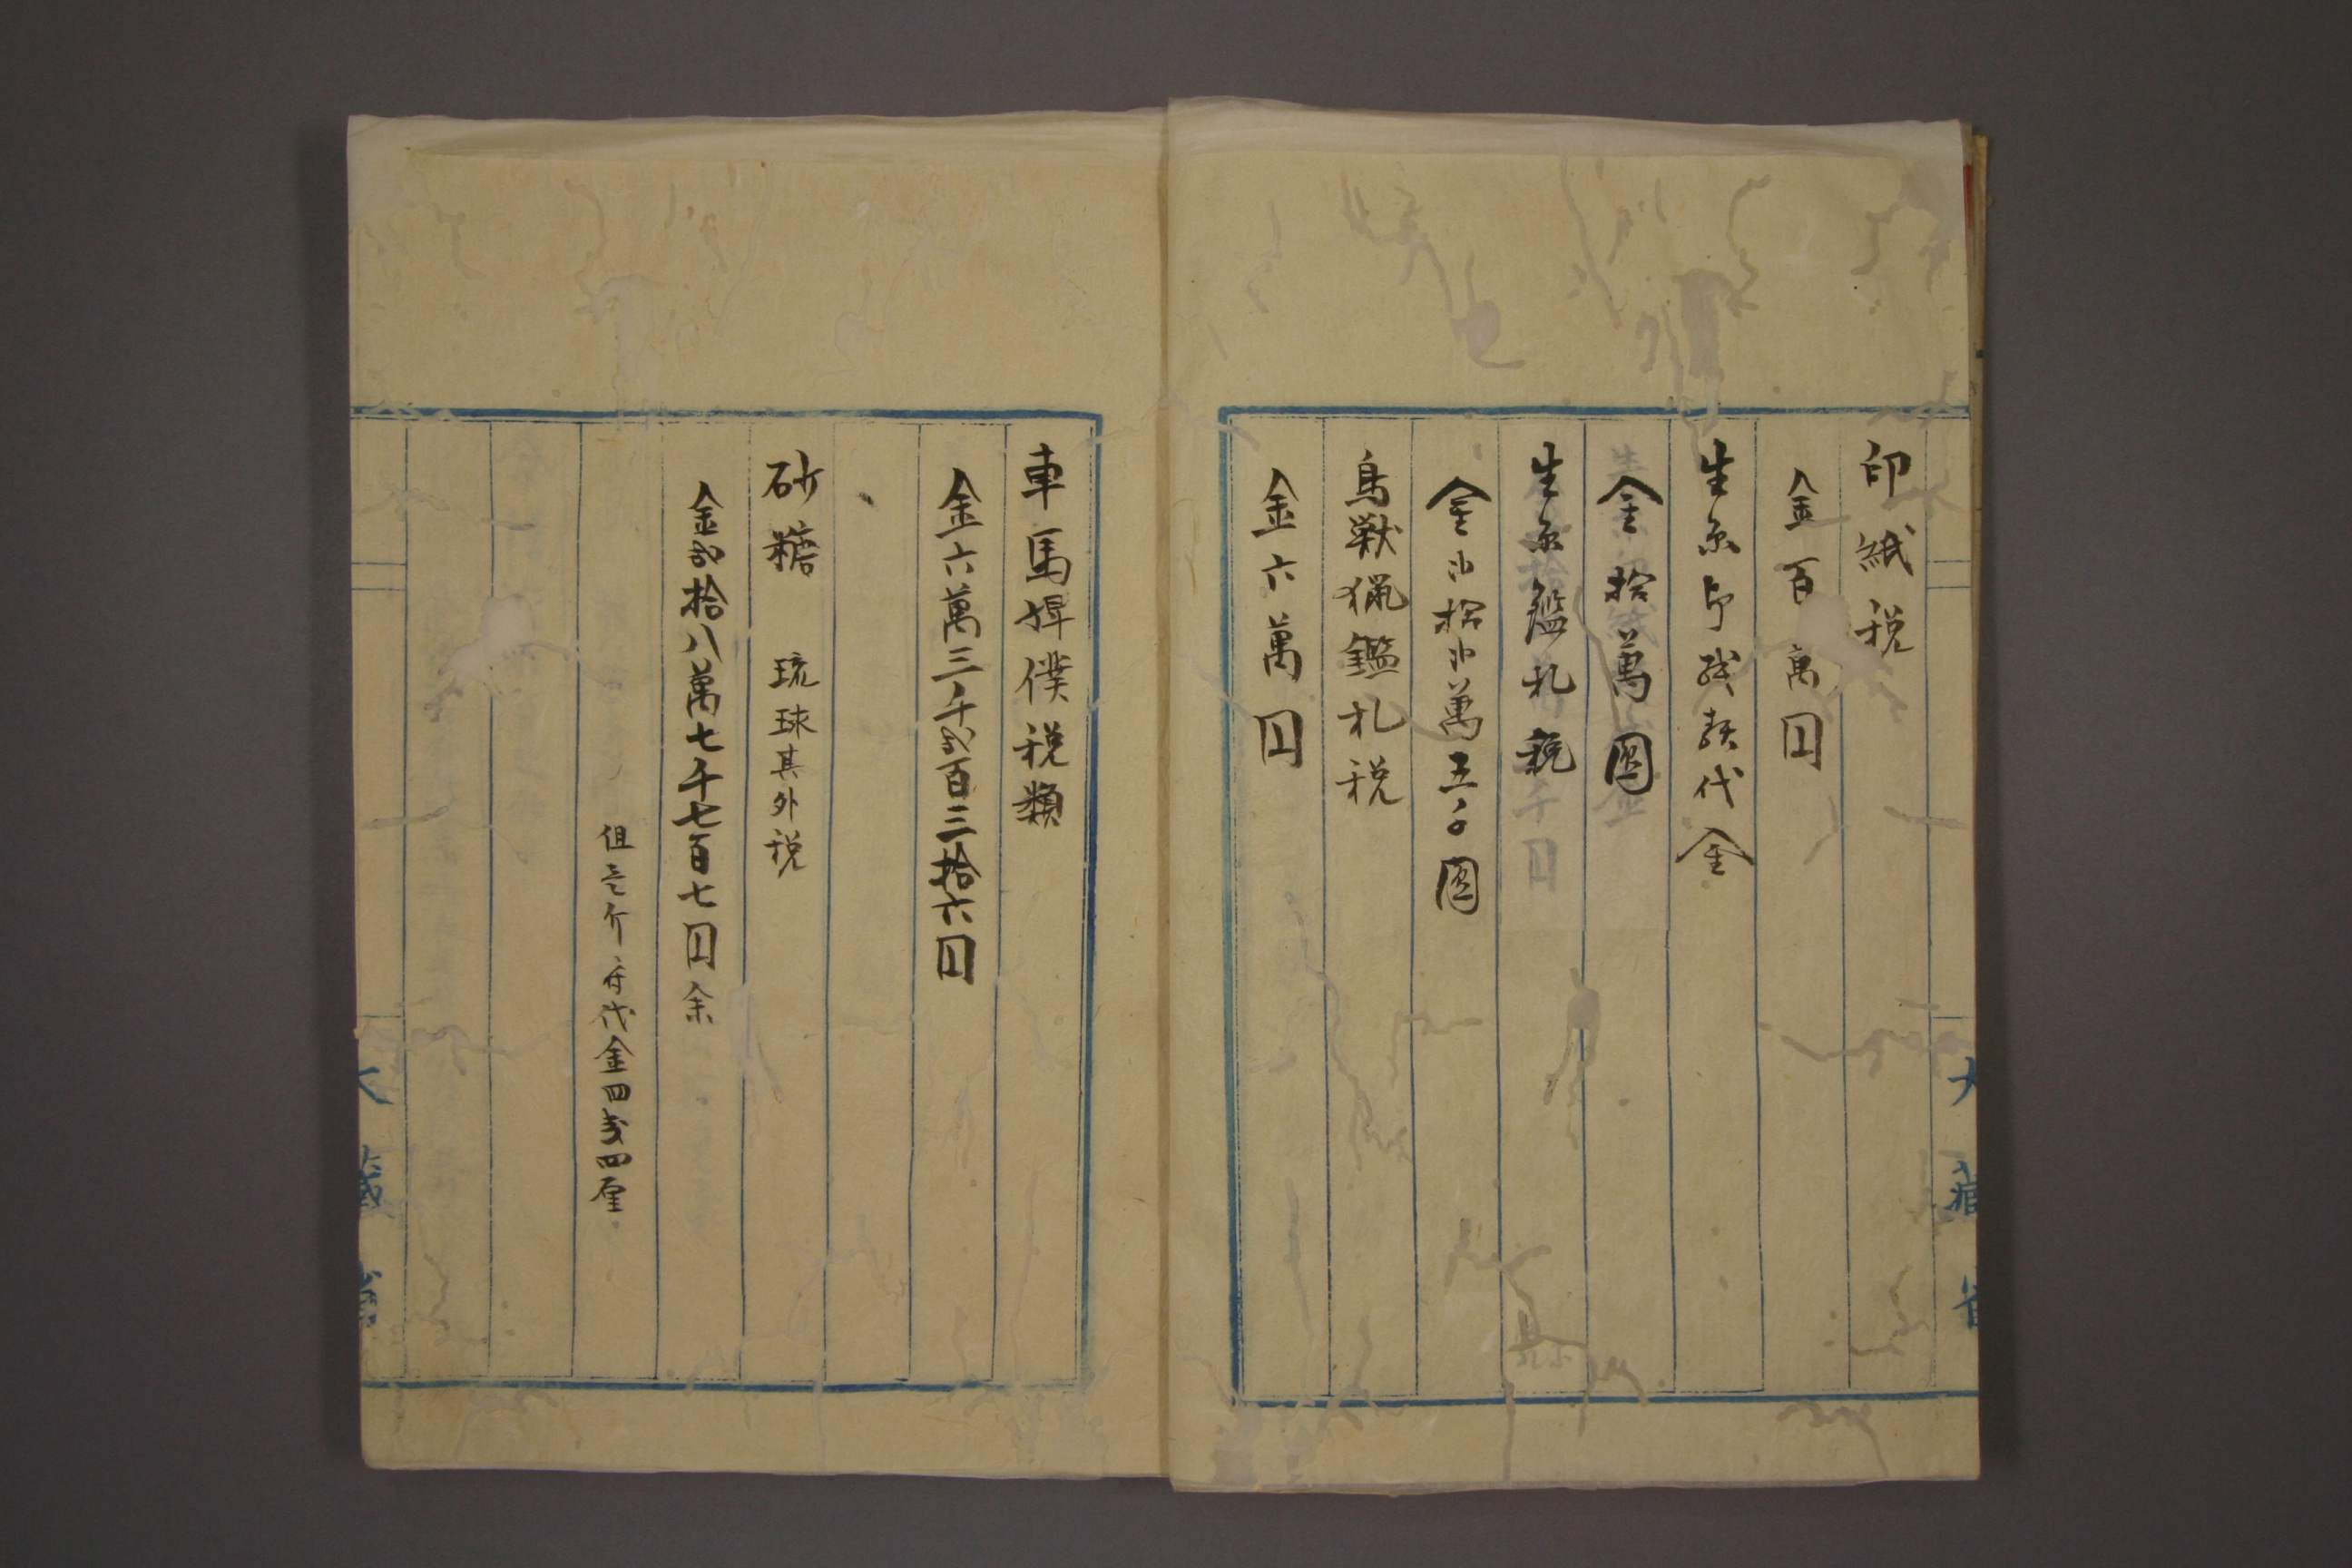 印紙税
金百萬円
生糸印紙類代金
金拾萬圓
生糸鑑札税
金廿拾廿萬五千圓
鳥獣猟鑑札税
金六萬円
大藏省
車馬婢僕税類
金六萬三千弐百三拾六円
砂糖 琉球其外税
金弐拾八萬七千七百七円余
但壱斤ニ付代金四銭四厘
大藏省